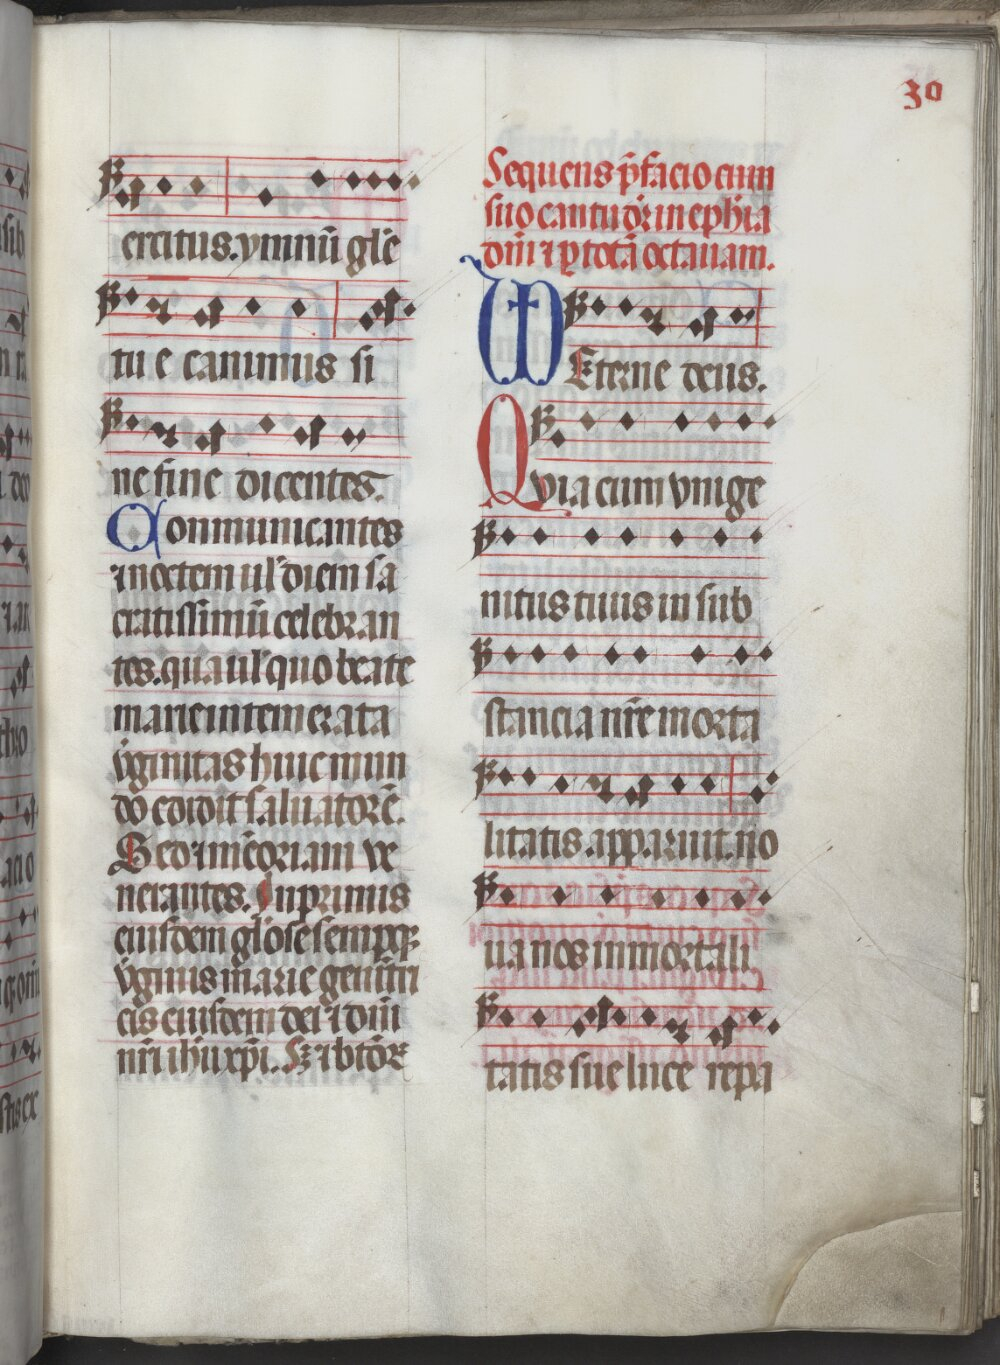 30
ercitus. ymnū gl̄e
tu e canimus si
ne fine dicentes.
Communicantes
⁊ noctem ul' diem sa
cratissimū celebran
tes. qua ul' quo beate
marie intemerata
v̓ginitas huic mun
do edidit saluatorē.
Sed ⁊ mēoriam ve
nerantes. Inprimis
eiusdem gl'ose semꝑqꝫ
v̓ginis marie genitri
cis eiusdem dei ⁊ dn̄i
nr̄i ih̄u xp̄i. Sꝫ ⁊ btōꝝ
Sequens p̄facio cum
suo cantu dr̄ in eph̄ia
dn̄i ⁊ ꝑ totā octauam.
Eterne deus.
Quia cum vnige
nitus tuus in sub
stancia nr̄e morta
litatis apparuit. no
ua nos inmortali
tatis sue luce repa